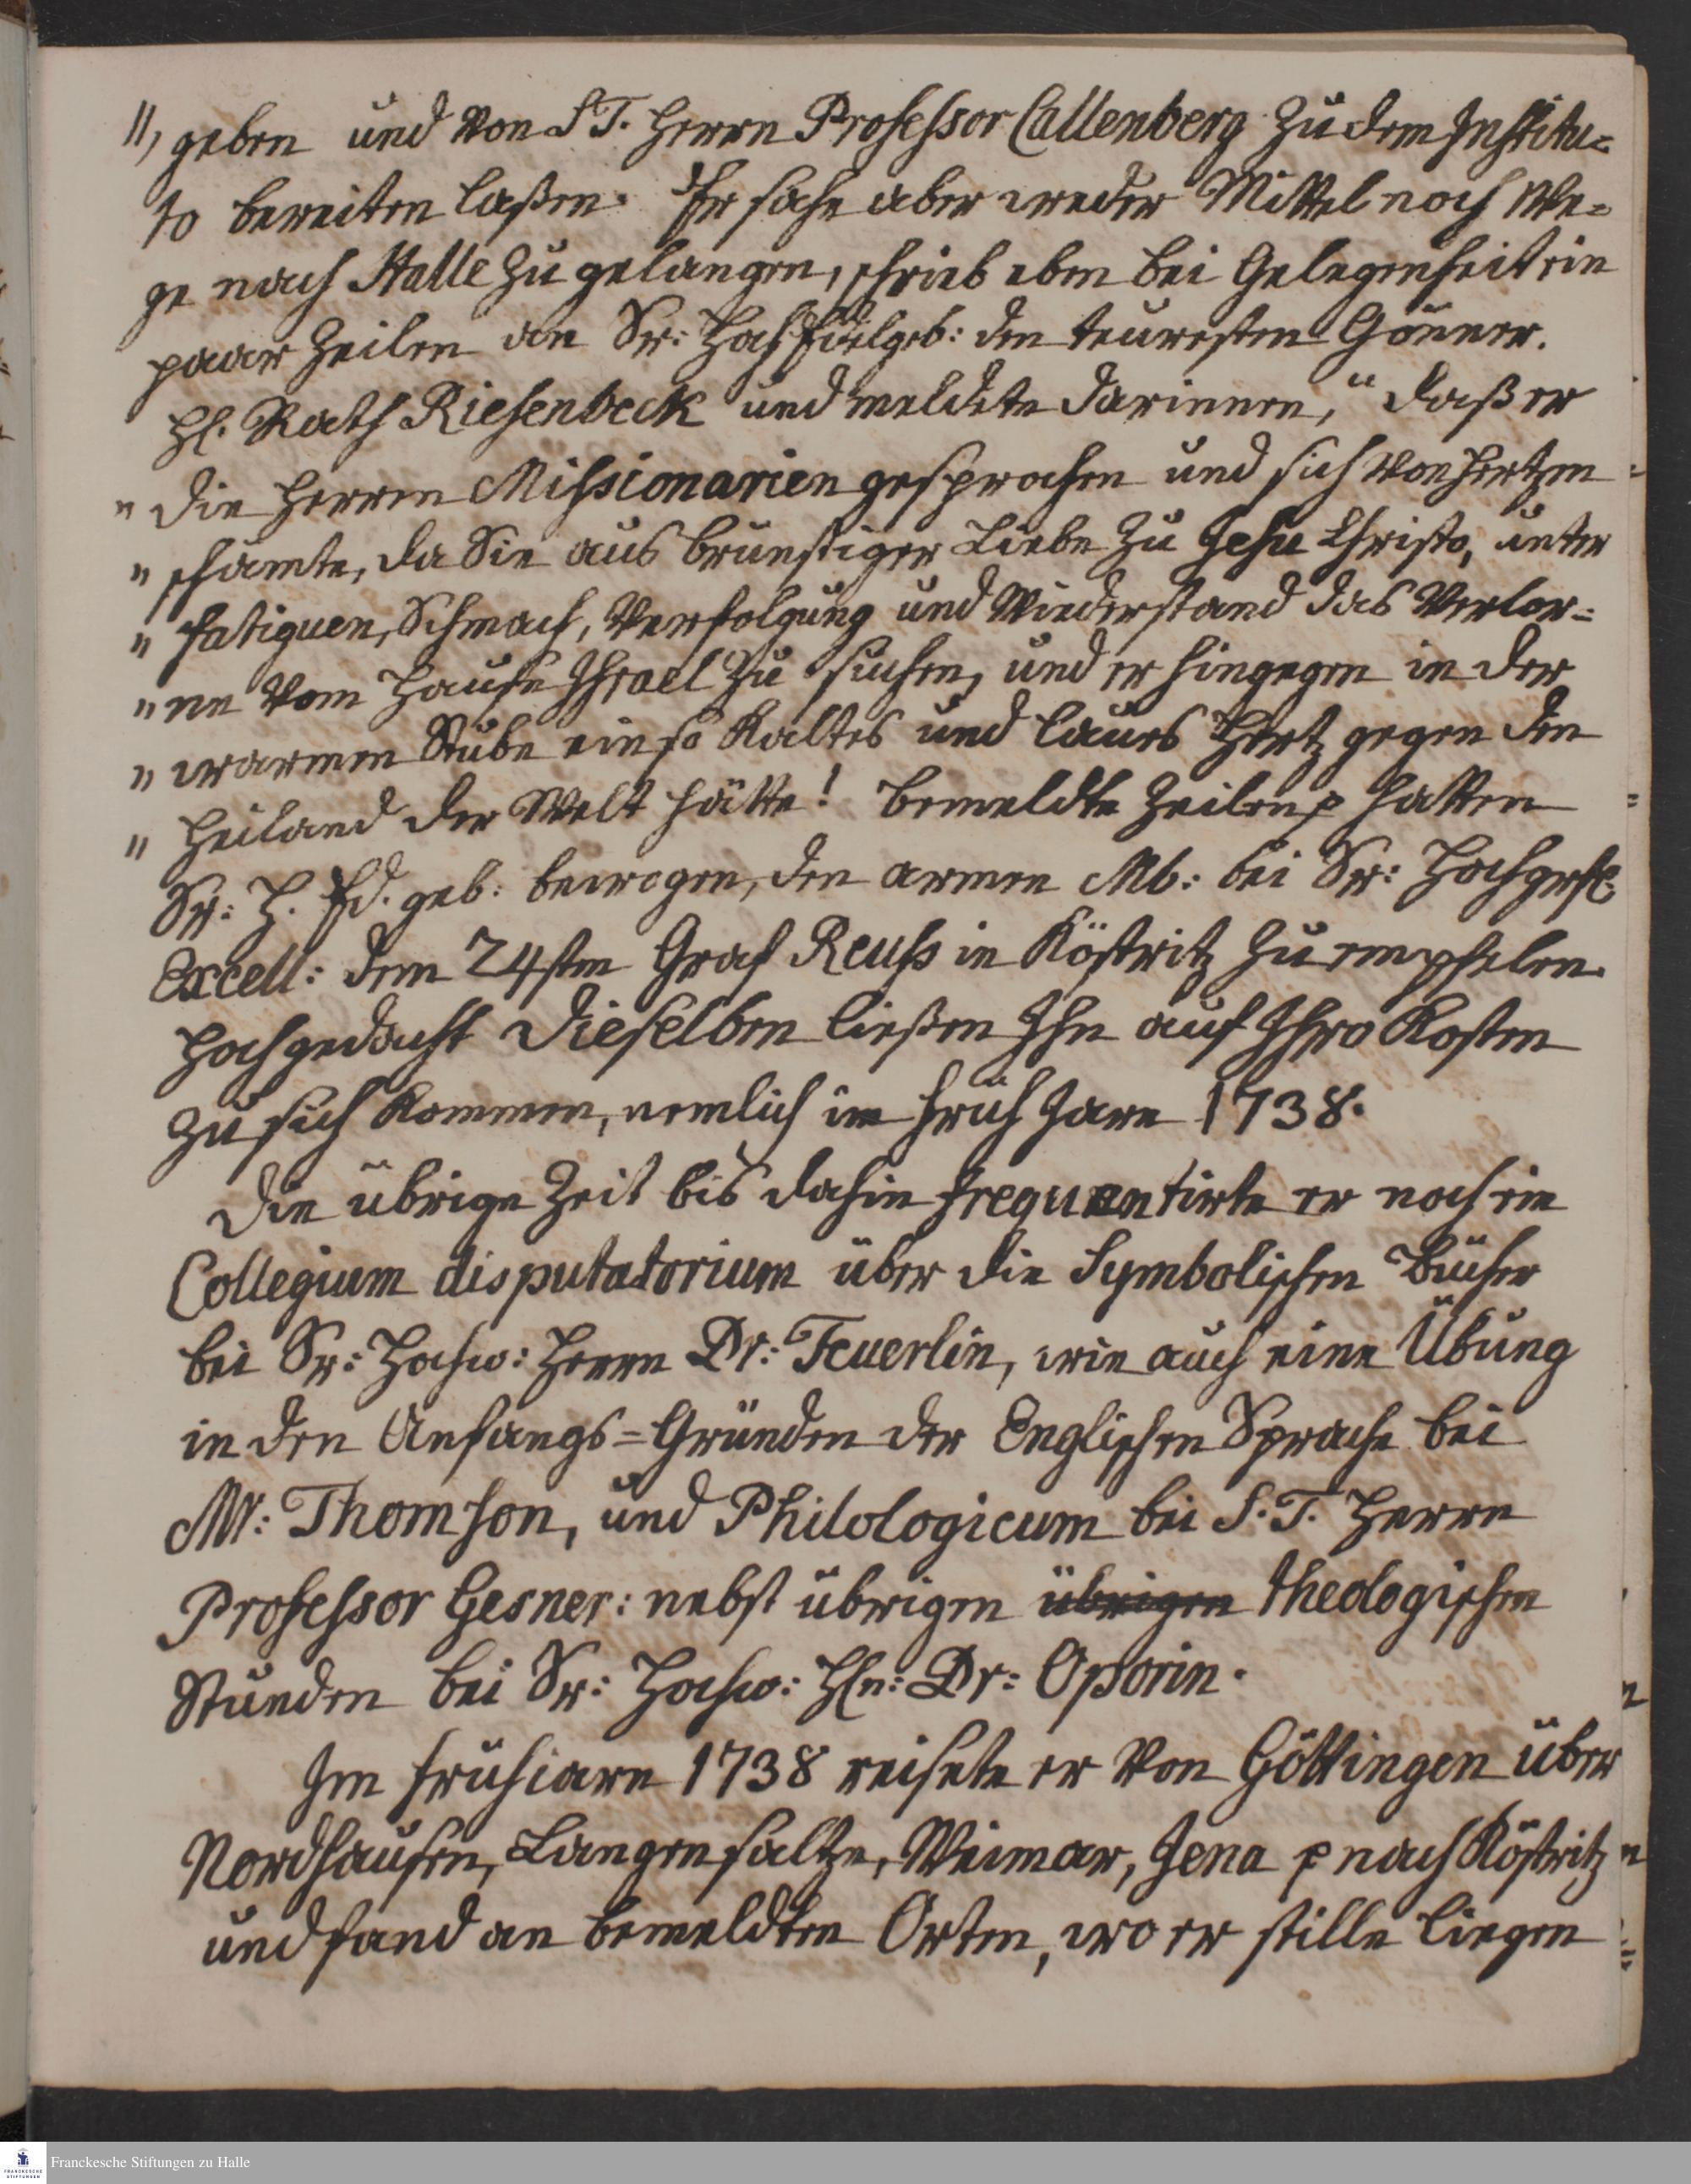 ", geben und von S. T. Herrn Professor Callenberg zu dem Institu=
to bereiten laßen. Er sahe aber weder Mittel noch We=
ge nach Halle zu gelangen, schrieb eben bei Gelegenheit ein
paar Zeilen an Sr: HochEdelgeb: den teuresten Gönner.
Hl. Rath Riesenbeck und meldete darinnen, "daß er
" die Herren Missionarien gesprochen und sich von Hertzen
" schämte, da Sie aus brünstiger Liebe zu Jesu Christo, unter
" fatiguen, Schmach, Verfolgung und Wiederstand das Verlor=
" ne vom Hause Israel zu suchen, und er hingegen in der
" warmen Stube ein so kaltes und laues Hertz gegen den
" Heiland der Welt hätte! Bemeldte Zeilen p hatten
Sr: H. Ed. geb. bewogen, den armen Mb: bei Sr: Hochgrfl.
Excell: dem 24sten Graf Reuss in Köstritz zu empfelen.
Hochgedacht Dieselben ließen Ihn auf Ihro Kosten
zu sich kommen, nemlich im Früh Jare 1738.
Die übrige Zeit bis dahin frequentirte er noch ein
Collegium disputatorium über die Symbolischen Bücher
bei Sr: Hochw: Herrn Dr: Feuerlin, wie auch eine Übung
in den Anfangs=Gründen der Englischen Sprache bei
Mr: Thomson, und Philologicum bei S. T. Herrn
Professor Gesner: nebst übrigen übrigen theologischen
Stunden bei Sr: Hochw: Hln: Dr: Oporin.
Im Frühiare 1738 reisete er von Göttingen über
Nordhausen, Langensaltze, Weimar, Jena p nach Köstritz
und fand an bemeldten Orten, wo er stille liegen
Franckesche Stiftungen zu Halle